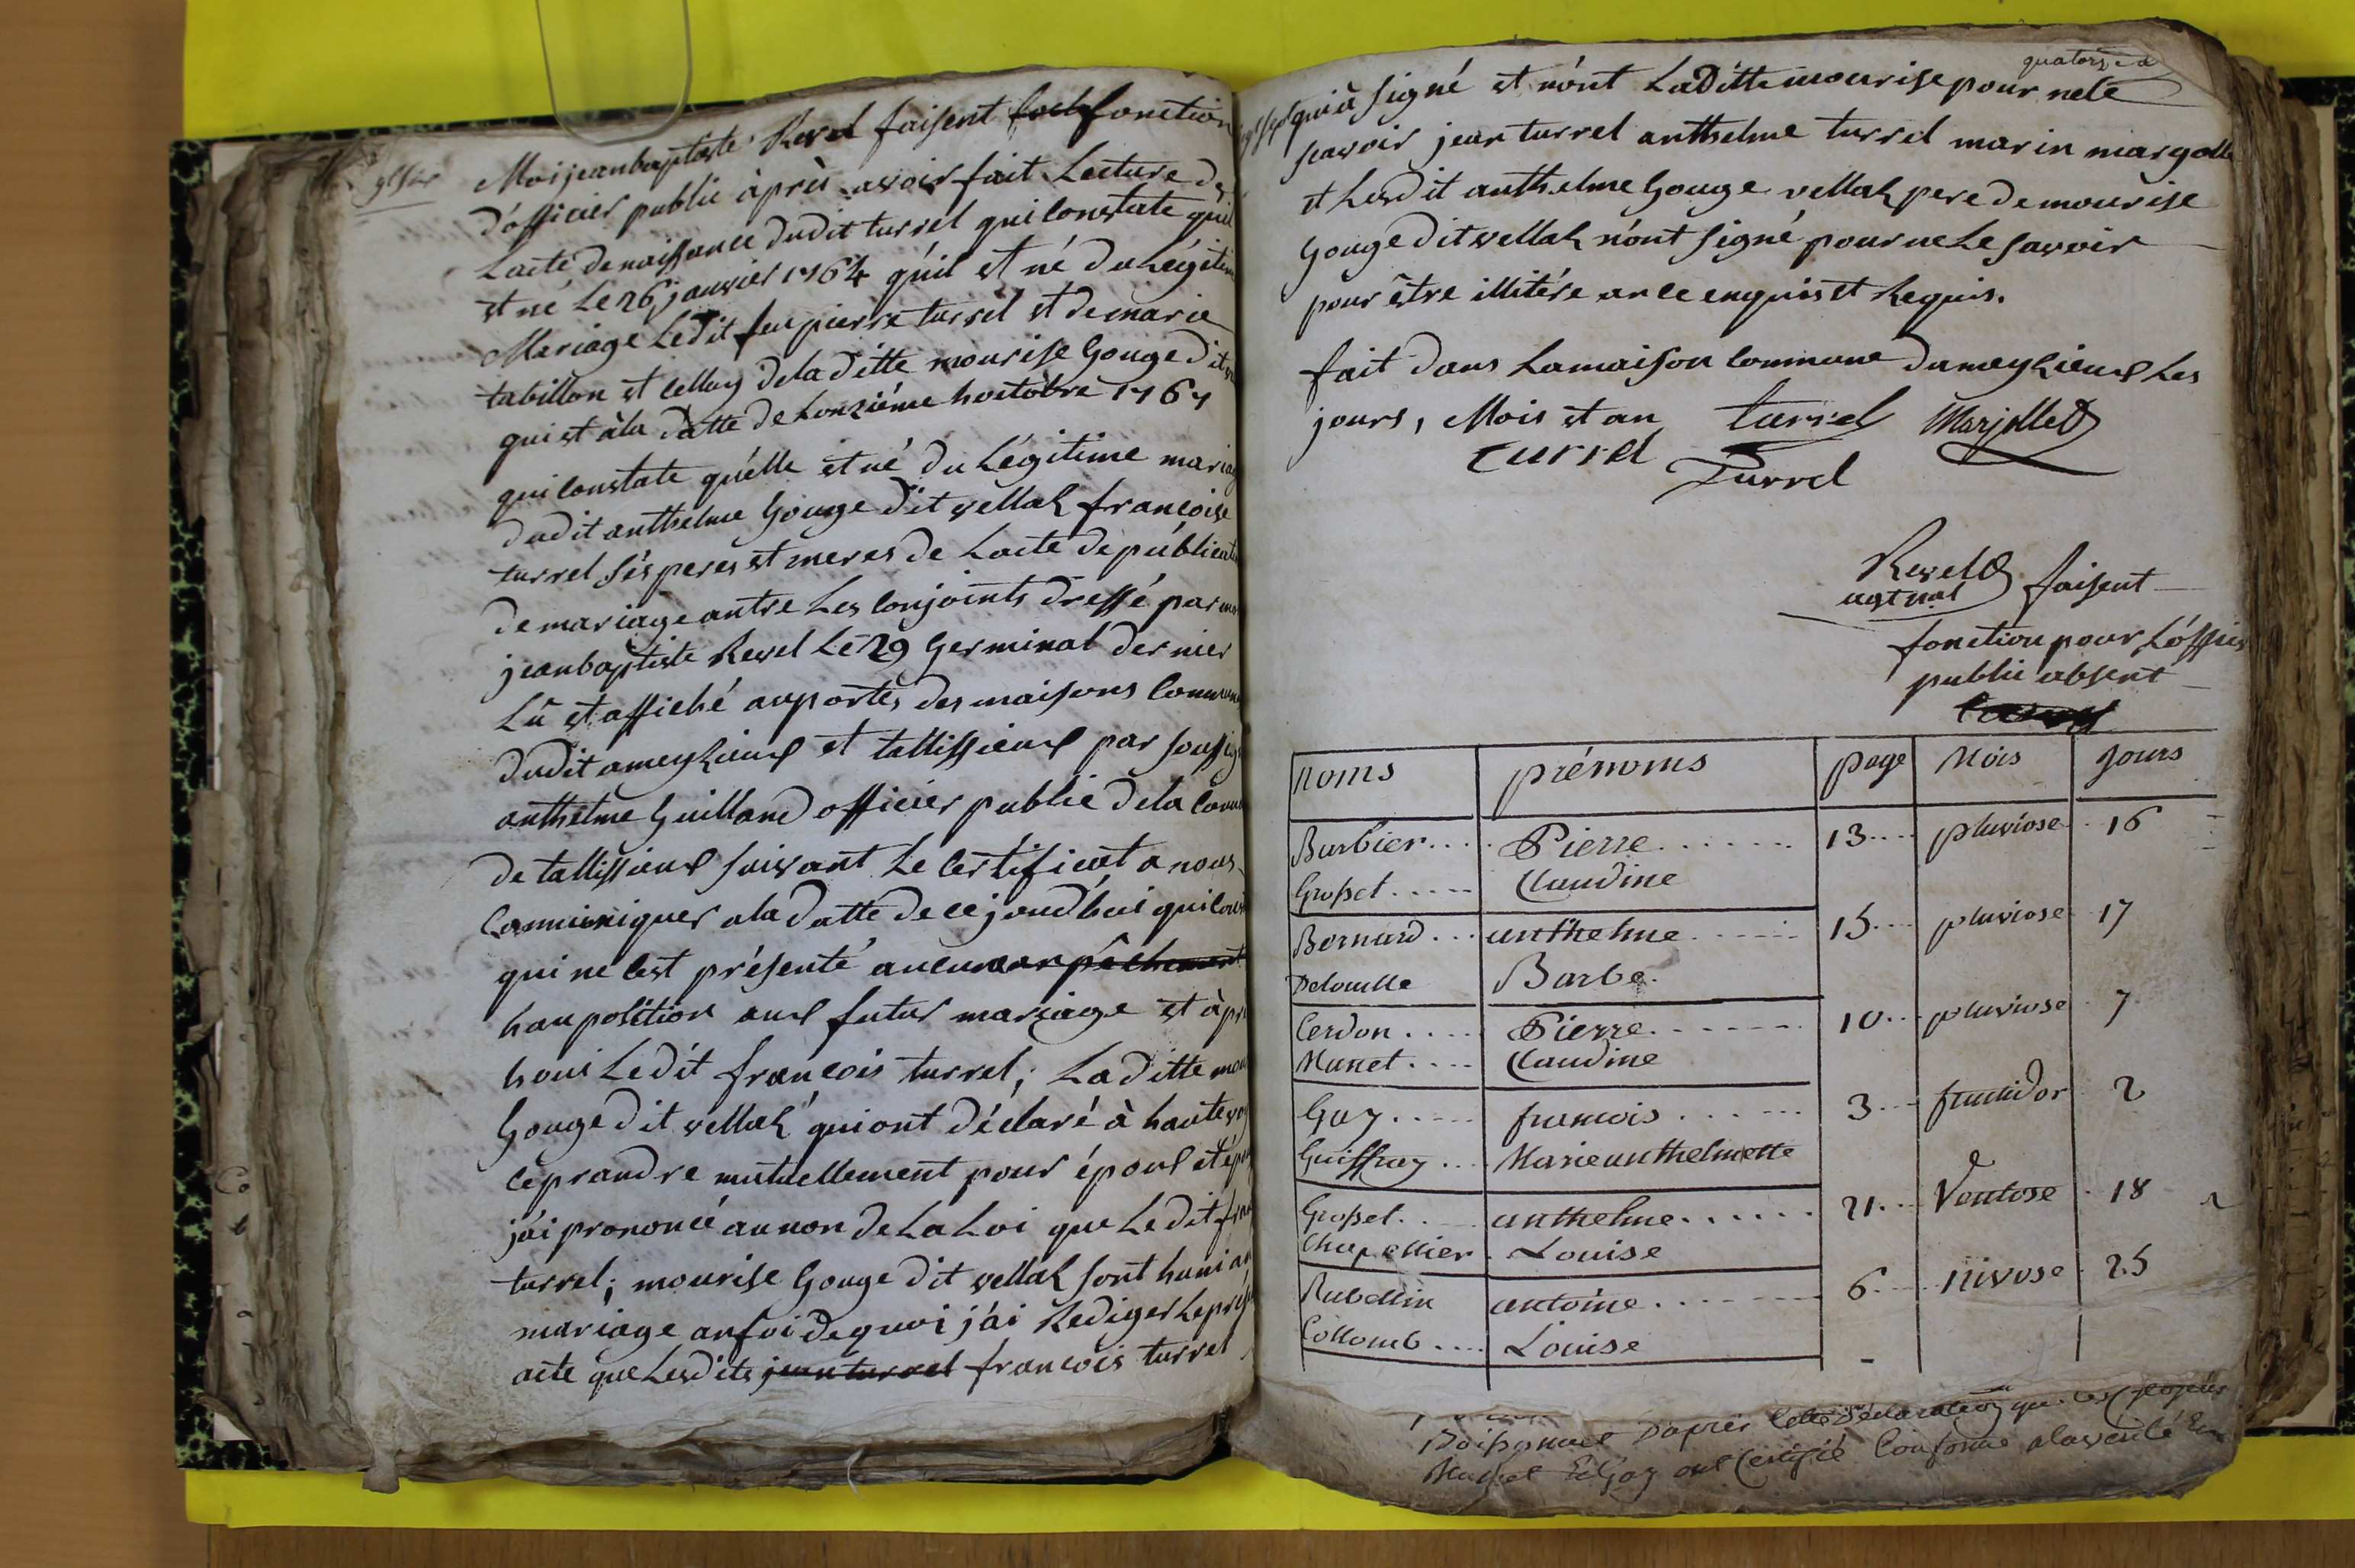 Moi jeanbaptiste Revel faisent fonction
d'officier public àprès avoir fait Lecture de
Lacte denaissance dudit turrel qui Constate quil
et né Le 26 janvier 1764 qúil et né du Légitim
Mariage Ledit feu pierre turrel et de marie
tabillon et celluy deladitte mourise Gouge dit
qui et àla datte de Lonziéme hoctobre 1767
qui Constate quélle et né du Légitime mariag
dudit anthelme Gouge dit vellak françoise
turrel sés peres et meres de Lacte de públicat
de mariage antre Les Conjoints dressé par m
jeanbaptiste Revel Le 29 Germinal dernier
Lû et affiché auportes des maisons Commun
dudit ameyzieux et tallissieux par soussig
anthelme Guilland officier public dela Comm
de tallissieux suivant Le Certificat a nous
Commiquer ala datte de ce joudhui qui Cons
qui ne Cest présenté aucun anpêchement
houposition aux futur mariage et àpr
houi Ledit françois turrel; Laditte mou
Gouge dit vellak qui ont déclaré à haute vo
ce prandre mutuellement pour époux et ép
jái prononcé au non de La Loi que Ledit fran
turrel; mourise Gouge dit vellak sont huni an
mariage anfoi dequoi jái Rediger Leprés
acte que Lesdits jean turrel françois turrel
quatorze
quià signé et nónt Laditte mourise pour nele
scavoir jean turrel anthelme turrel marin margolle
et Lesdit anthelme Gouge vellak pere de mourise
Gouge dit vellak nónt signé pour ne Le savoir
pour être illitére an ce enquis et Requis.
fait dans Lamaison Commune dameyzieux Les
jours, Mois et an turrel Marjollet
turrel
Turrel
Revel
agt nal faisent
fonction pour Lóffici
public absent
noms prénoms page Mois Jours
Barbier.... Pierre....... 13.... pluviose 16
Grosset..... Claudine
Bernard... anthelme...... 15.... pluviose 17
Delouille Barbe.
Cerdon.... Pierre....... 10... pluviose 7
Munet.... Claudine
Guy..... francois...... 3... frucidor 2
Guiffray... Marieanthelmette
Grosset.... anthelme...... 21... Ventose 18
Chapellier. Louise
Rubellin antoine....... 6.... Nivose 25
Collomb.... Louise
D'apres Cette déclaration que les
ont Certifié Conforme alavérité